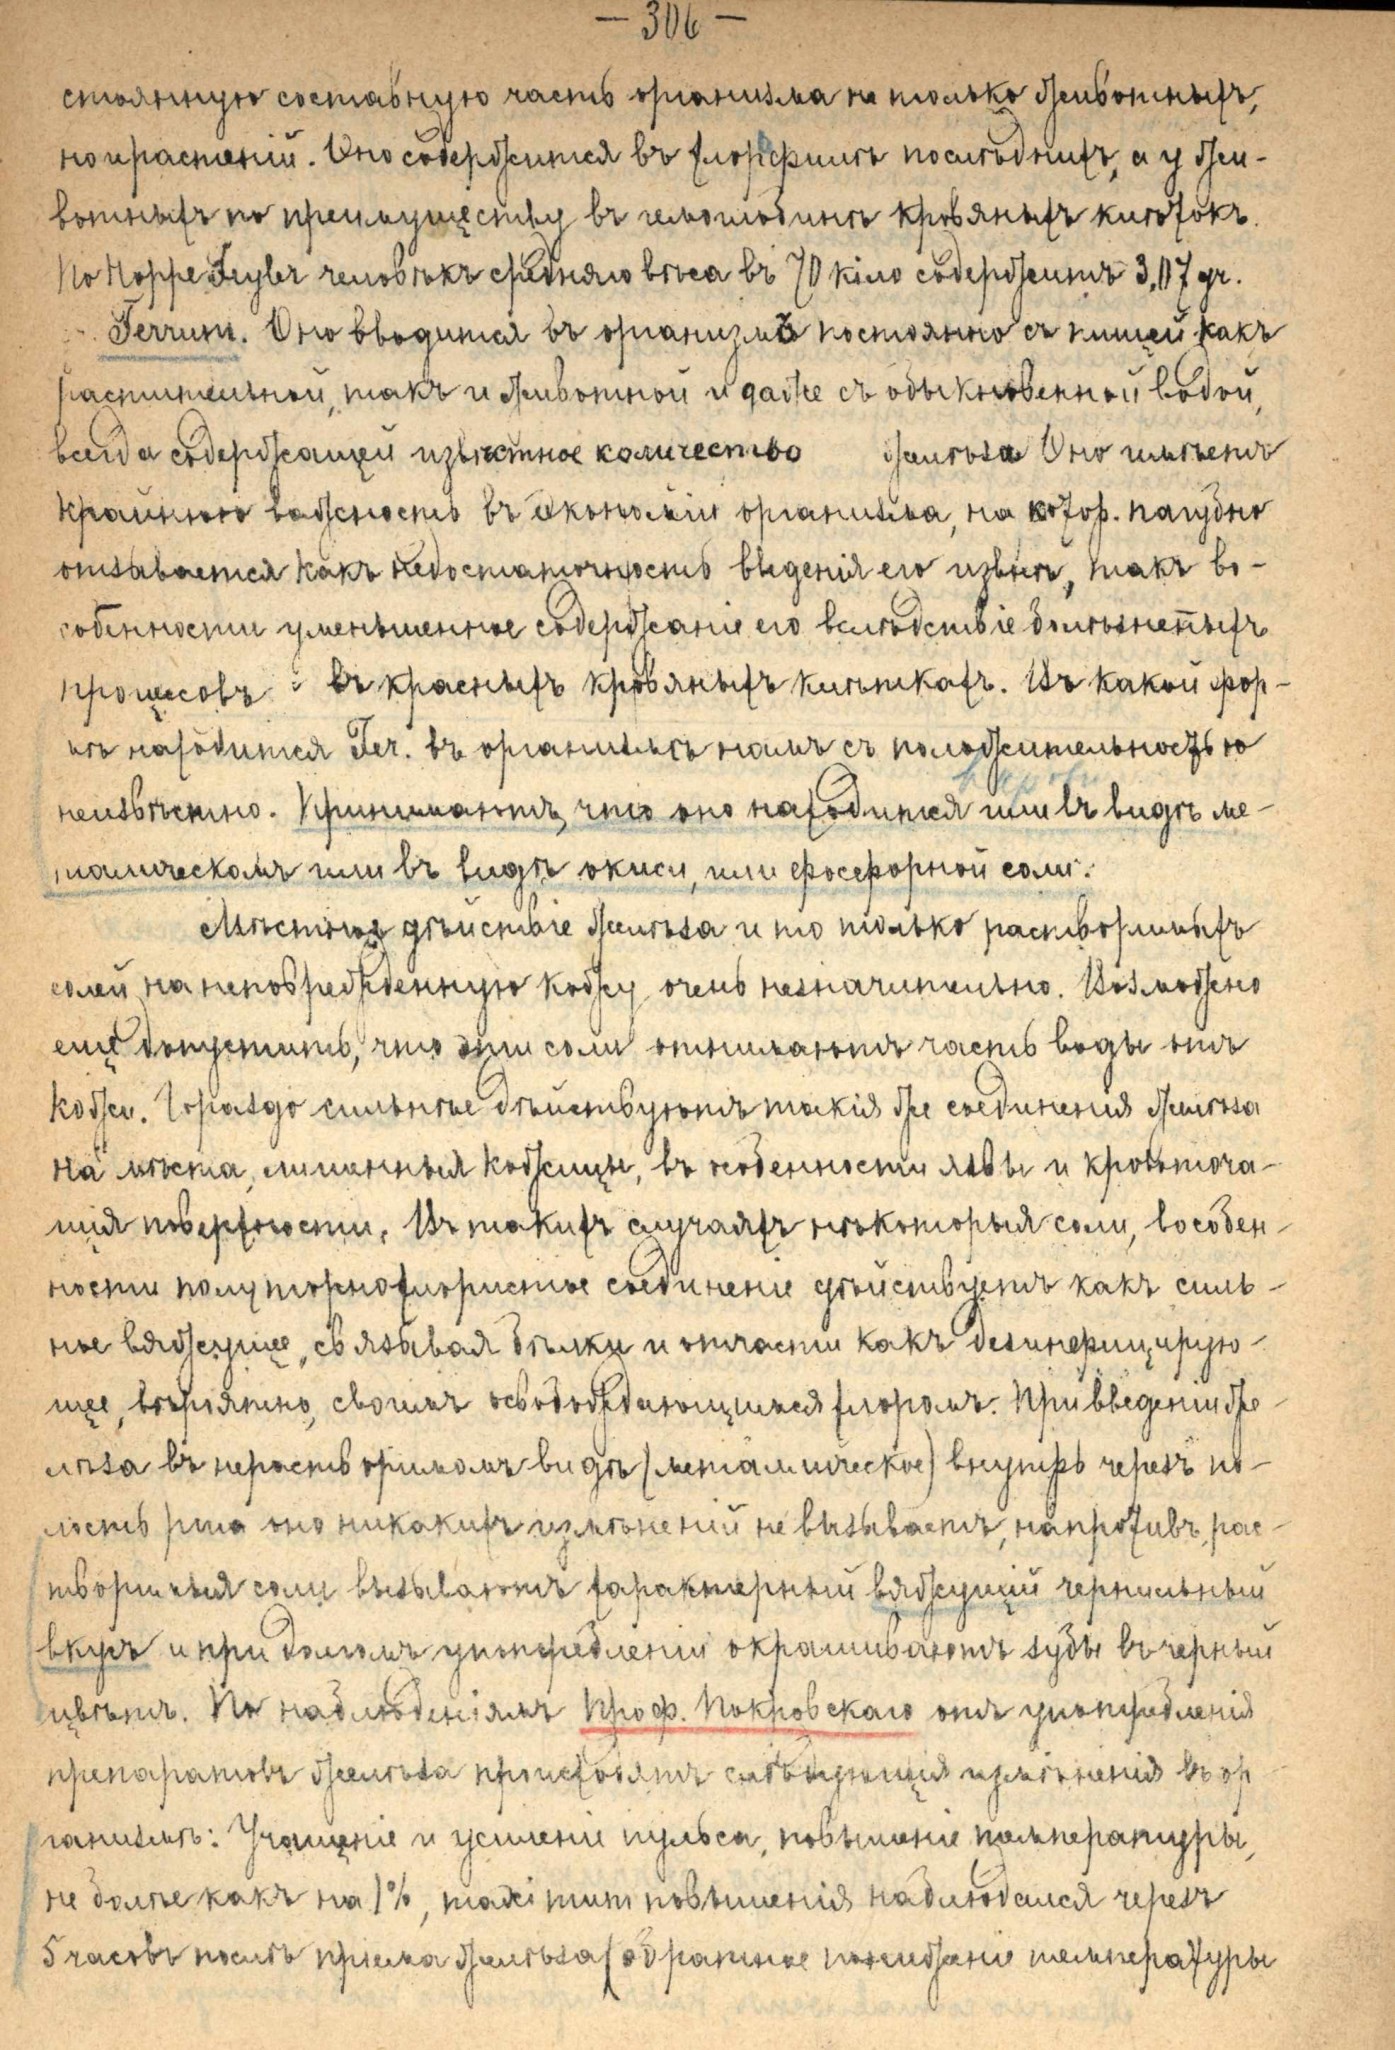 — 306 —
стоянную составную часть организма не только животныхъ,
но и растеній. Оно содержится въ хлорофиллѣ послѣднихъ, а у жи-
вотныхъ по преимуществу въ гемоглобинѣ кровяныхъ клѣтокъ.
По Hoppe Seyler человѣкъ средняго вѣса въ 70 кило содержитъ 3,07 gr.
Ferrum. Оно вводится въ организмъ постоянно съ пищей какъ
растительной, такъ и животной и даже съ обыкновенной водой,
всегда содержащей извѣстное количество желѣза Оно имѣетъ
крайнюю важность въ экономіи организма, на котор. пагубно
отзывается какъ недостаточность введенія его извнѣ, такъ во-
собенности уменьшенное содержаніе его вслѣдствіе болѣзненныхъ
процессовъ въ красныхъ кровяныхъ клѣткахъ. Въ какой фор-
мѣ находится Fer. въ организмѣ намъ съ положительностью
неизвѣстно. Принимаютъ, что оно находится или въ видѣ ме-
таллическомъ или въ видѣ окиси, или фосфорной соли.
Мѣстное дѣйствіе желѣза и то только растворимыхъ
солей на неповрежденную кожу очень незначительно. Возможно
еще допустить, что эти соли отнимаютъ часть воды отъ
кожи. Гораздо сильнѣе дѣйствуютъ такія же соединенія желѣза
на мѣста, лишенныя кожицы, въ особенности язвы и кровоточа-
щія поверхности. Въ такихъ случаяхъ нѣкоторыя соли, въ особен-
ности полуторнохлористое соединеніе дѣйствуетъ какъ силь-
ное вяжущее, связывая бѣлки и отчасти какъ дезинфицирую-
щее, вѣроятно, своимъ освобождающимся хлоромъ. При введеніи же-
лѣза въ нерастворимомъ видѣ (металлическое) внутрь черезъ по-
лость рта оно никакихъ измѣненій не вызываетъ, напротивъ, рас-
творимыя соли вызываютъ характерный вяжущій чернильный
вкусъ и при долгомъ употребленіи окрашиваютъ зубы въ черный
цвѣтъ. По наблюденіямъ Проф. Покровскаго отъ употребленія
препаратовъ желѣза происходятъ слѣдующія измѣненія въ ор-
ганизмѣ: Учащеніе и усиленіе пульса, повышеніе температуры,
не болѣе какъ на 1%, maximum повышенія наблюдался черезъ
5 часовъ послѣ пріема желѣза (обратное пониженіе температуры